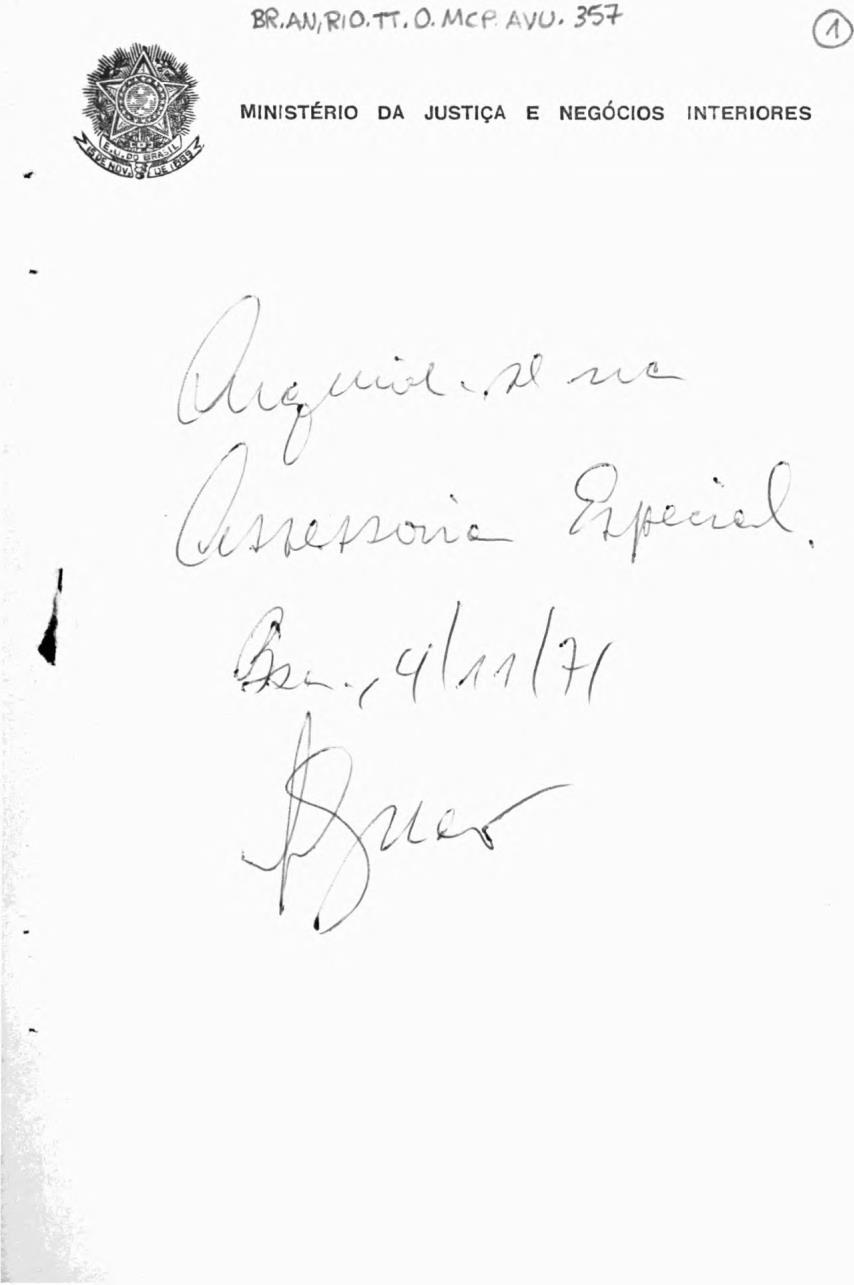 BR.AN,RIO.TT.O.MCP.AVU.357
1
MINISTÉRIO DA JUSTIÇA E NEGÓCIOS INTERIORES
E.U.DO BRASIL
15 DE NOV. DE 1889
Arquive-se na
Assessoria Especial.
Bsa., 4/11/71